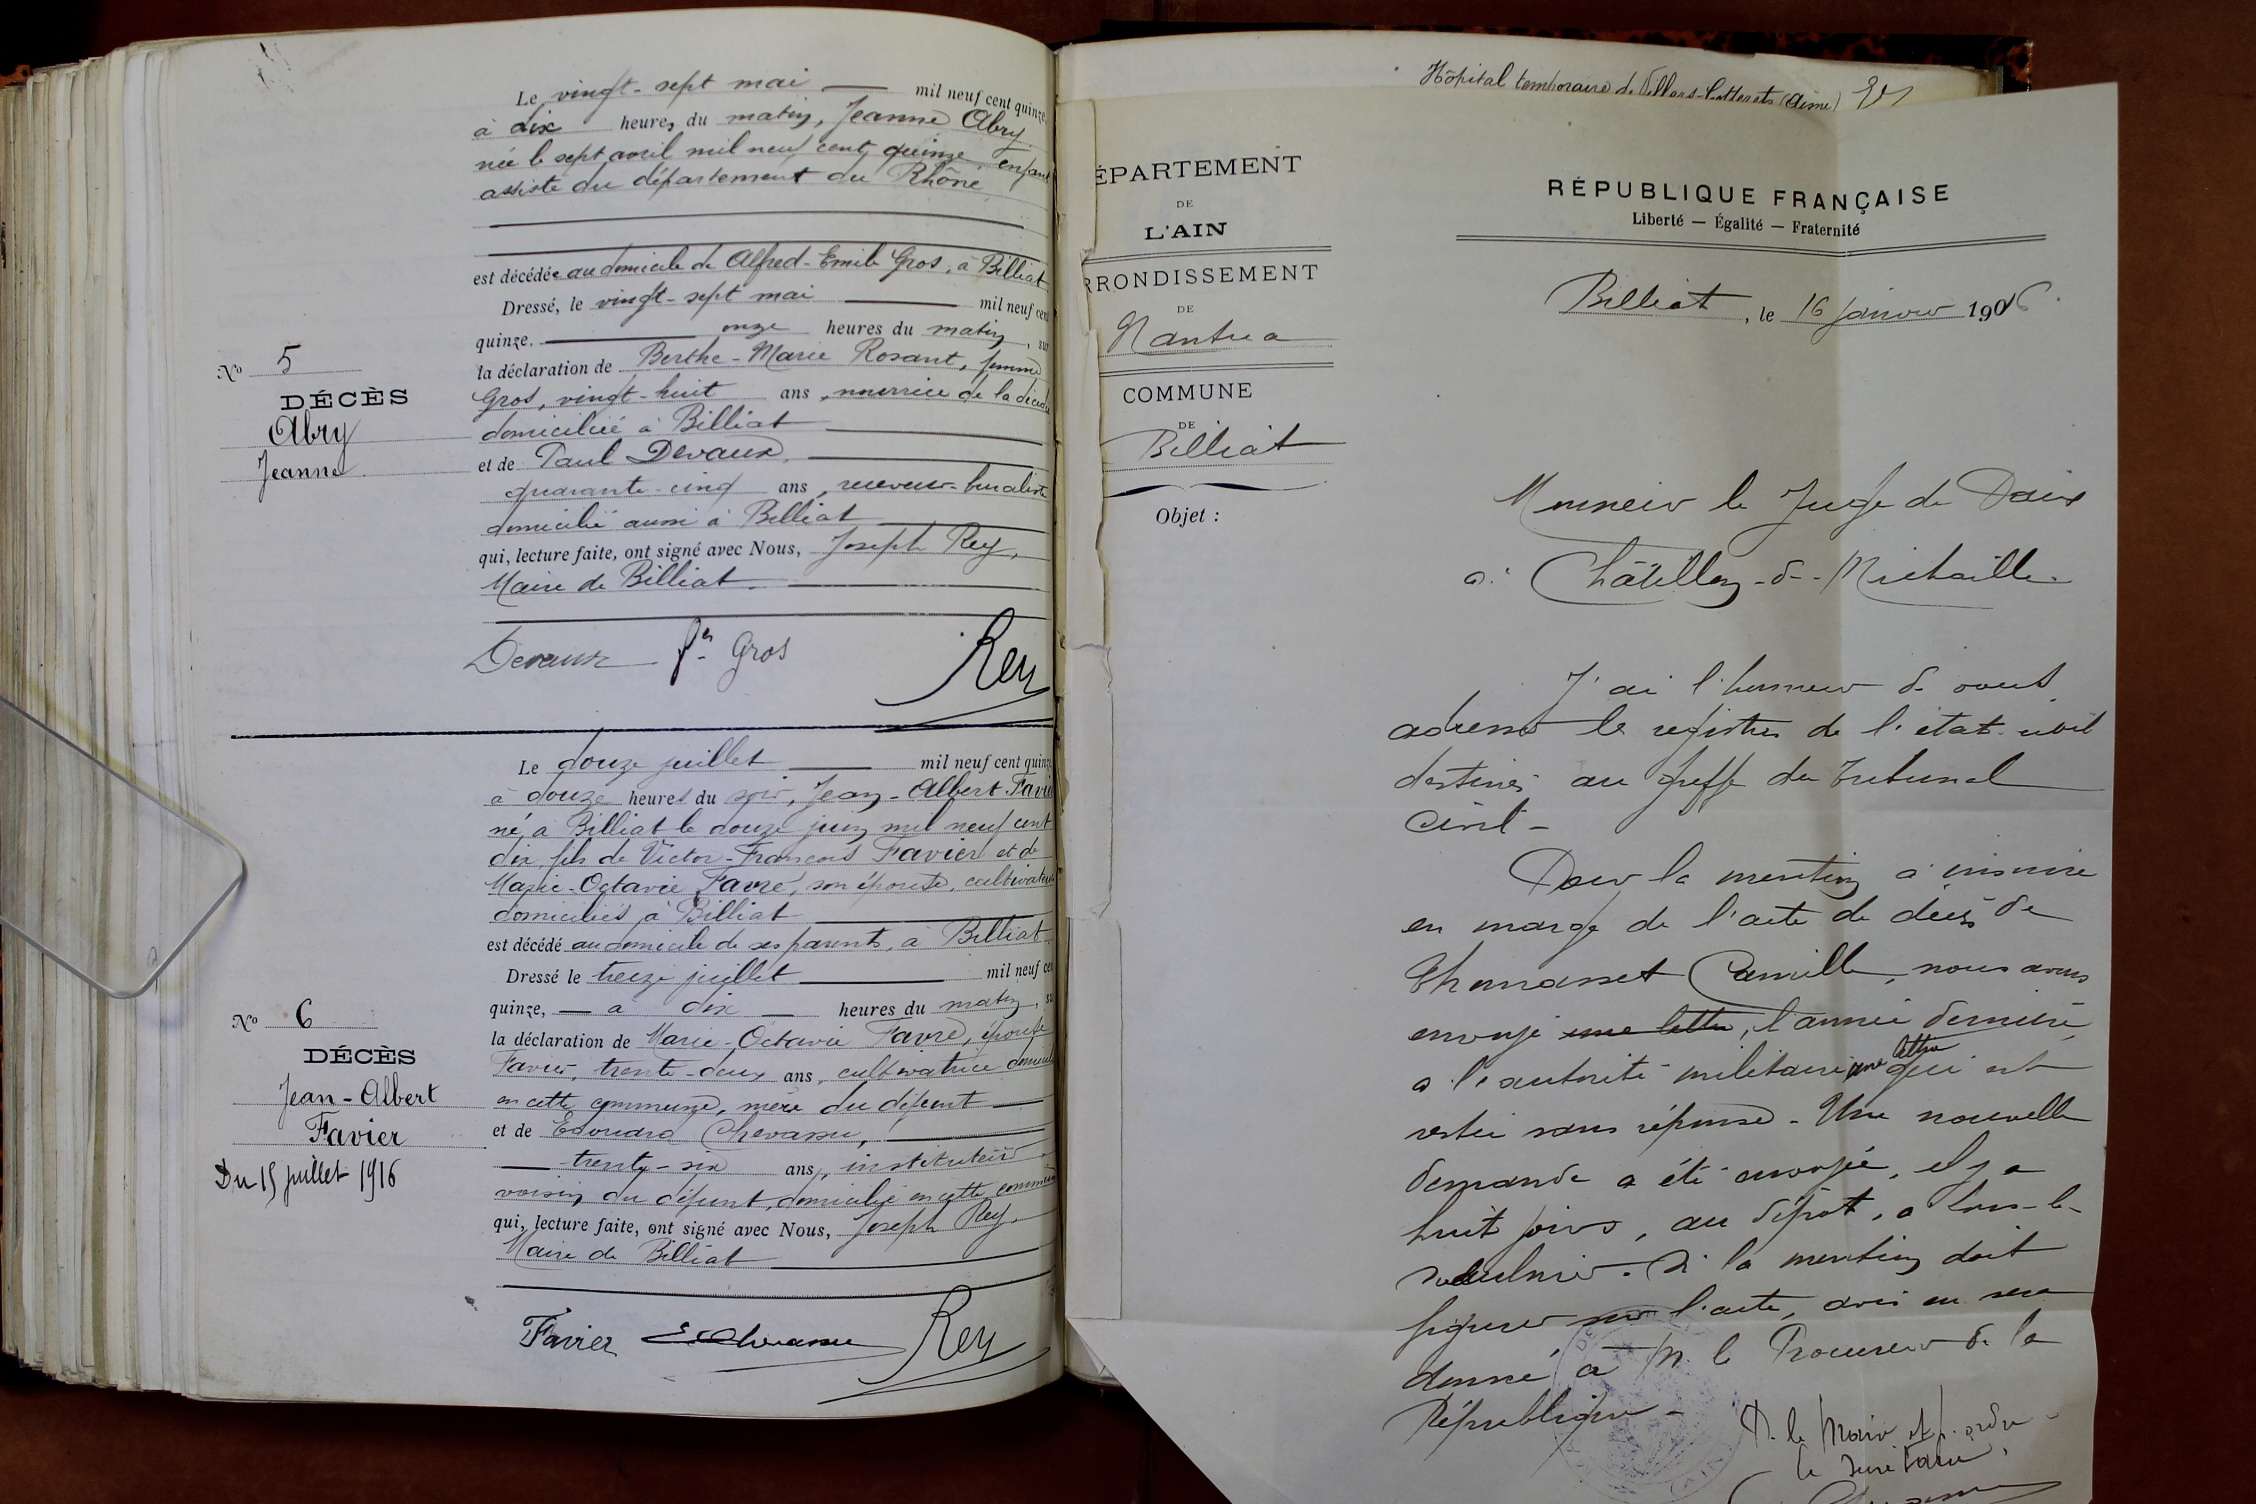 Le vingt-sept mai mil neuf cent quinze,
à dix heures du matin, Jeanne Abry
née le sept avril mil neuf cent quinze, enfant
assisté du département du Rhône
est décédée au domicile de Alfred-Emile Gros, à Billiat
Dressé, le vingt-sept mai mil neuf cent
quinze. onze heures du matin, sur
la déclaration de Berthe-Marie Rosant, femme
Gros, vingt-huit ans, nourrice de la décédée
domiciliée à Billiat
et de Paul Devaux,
quarante-cinq ans, receveur-buraliste
domicilié aussi à Billiat
qui, lecture faite, ont signé avec Nous, Joseph Rey,
Maire de Billiat
Devaux fe Gros Rey
No 5
DÉCÈS
Abry
Jeanne
Le douze juillet mil neuf cent quinze
à douze heures du soir, Jean-Albert Favier
né, à Billiat le douze juin mil neuf cent
dix, fils de Victor-François Favier et de
Marie-Octavie Favre, son épouse, cultivateurs
domiciliés à Billiat
est décédé au domicile de ses parents, à Billiat
Dressé le treize juillet mil neuf cent
quinze, à dix heures du matin, sur
la déclaration de Marie-Octavie Favre, épouse
Favier, trente-deux ans, cultivatrice domiciliée
en cette commune, mère du défunt
et de Edouard Chevassu,
trente-six ans, instituteur
voisin du défunt, domicilié en cette commune
qui, lecture faite, ont signé avec Nous, Joseph Rey,
Maire de Billiat
Favier E. Chevassu Rey
No 6
DÉCÈS
Jean-Albert
Favier
Du 15 juillet 1916
Hôpital temporaire de Villers-Cotterets (Aisne)
ÉPARTEMENT
DE
L'AIN
RRONDISSEMENT
DE
Nantua
COMMUNE
DE
Billiat
Objet :
RÉPUBLIQUE FRANÇAISE
Liberté — Égalité — Fraternité
Billiat, le 16 janvier 1916
Monsieur le Juge de Paix
à Châtillon-de-Michaille
J'ai l'honneur de vous
adresser le registres de l'état-civil
destinés au greffe du Tribunal
Civil-
Pour la mention à inscrire
en marge de l'acte de décès de
Camille, nous avons
envoyé une lettre, l'année dernière,
à l'autorité militaire une lettre qui est
restée sans réponse - Une nouvelle
demande a été envoyée, il y a
huit jours, au dépôt, à Lons-le-
Saulnier. Si la mention doit
figurer sur l'acte, avis en sera
donné à M. le Procureur de la
République -
P. le Maire et p. ordre
le secrétaire,